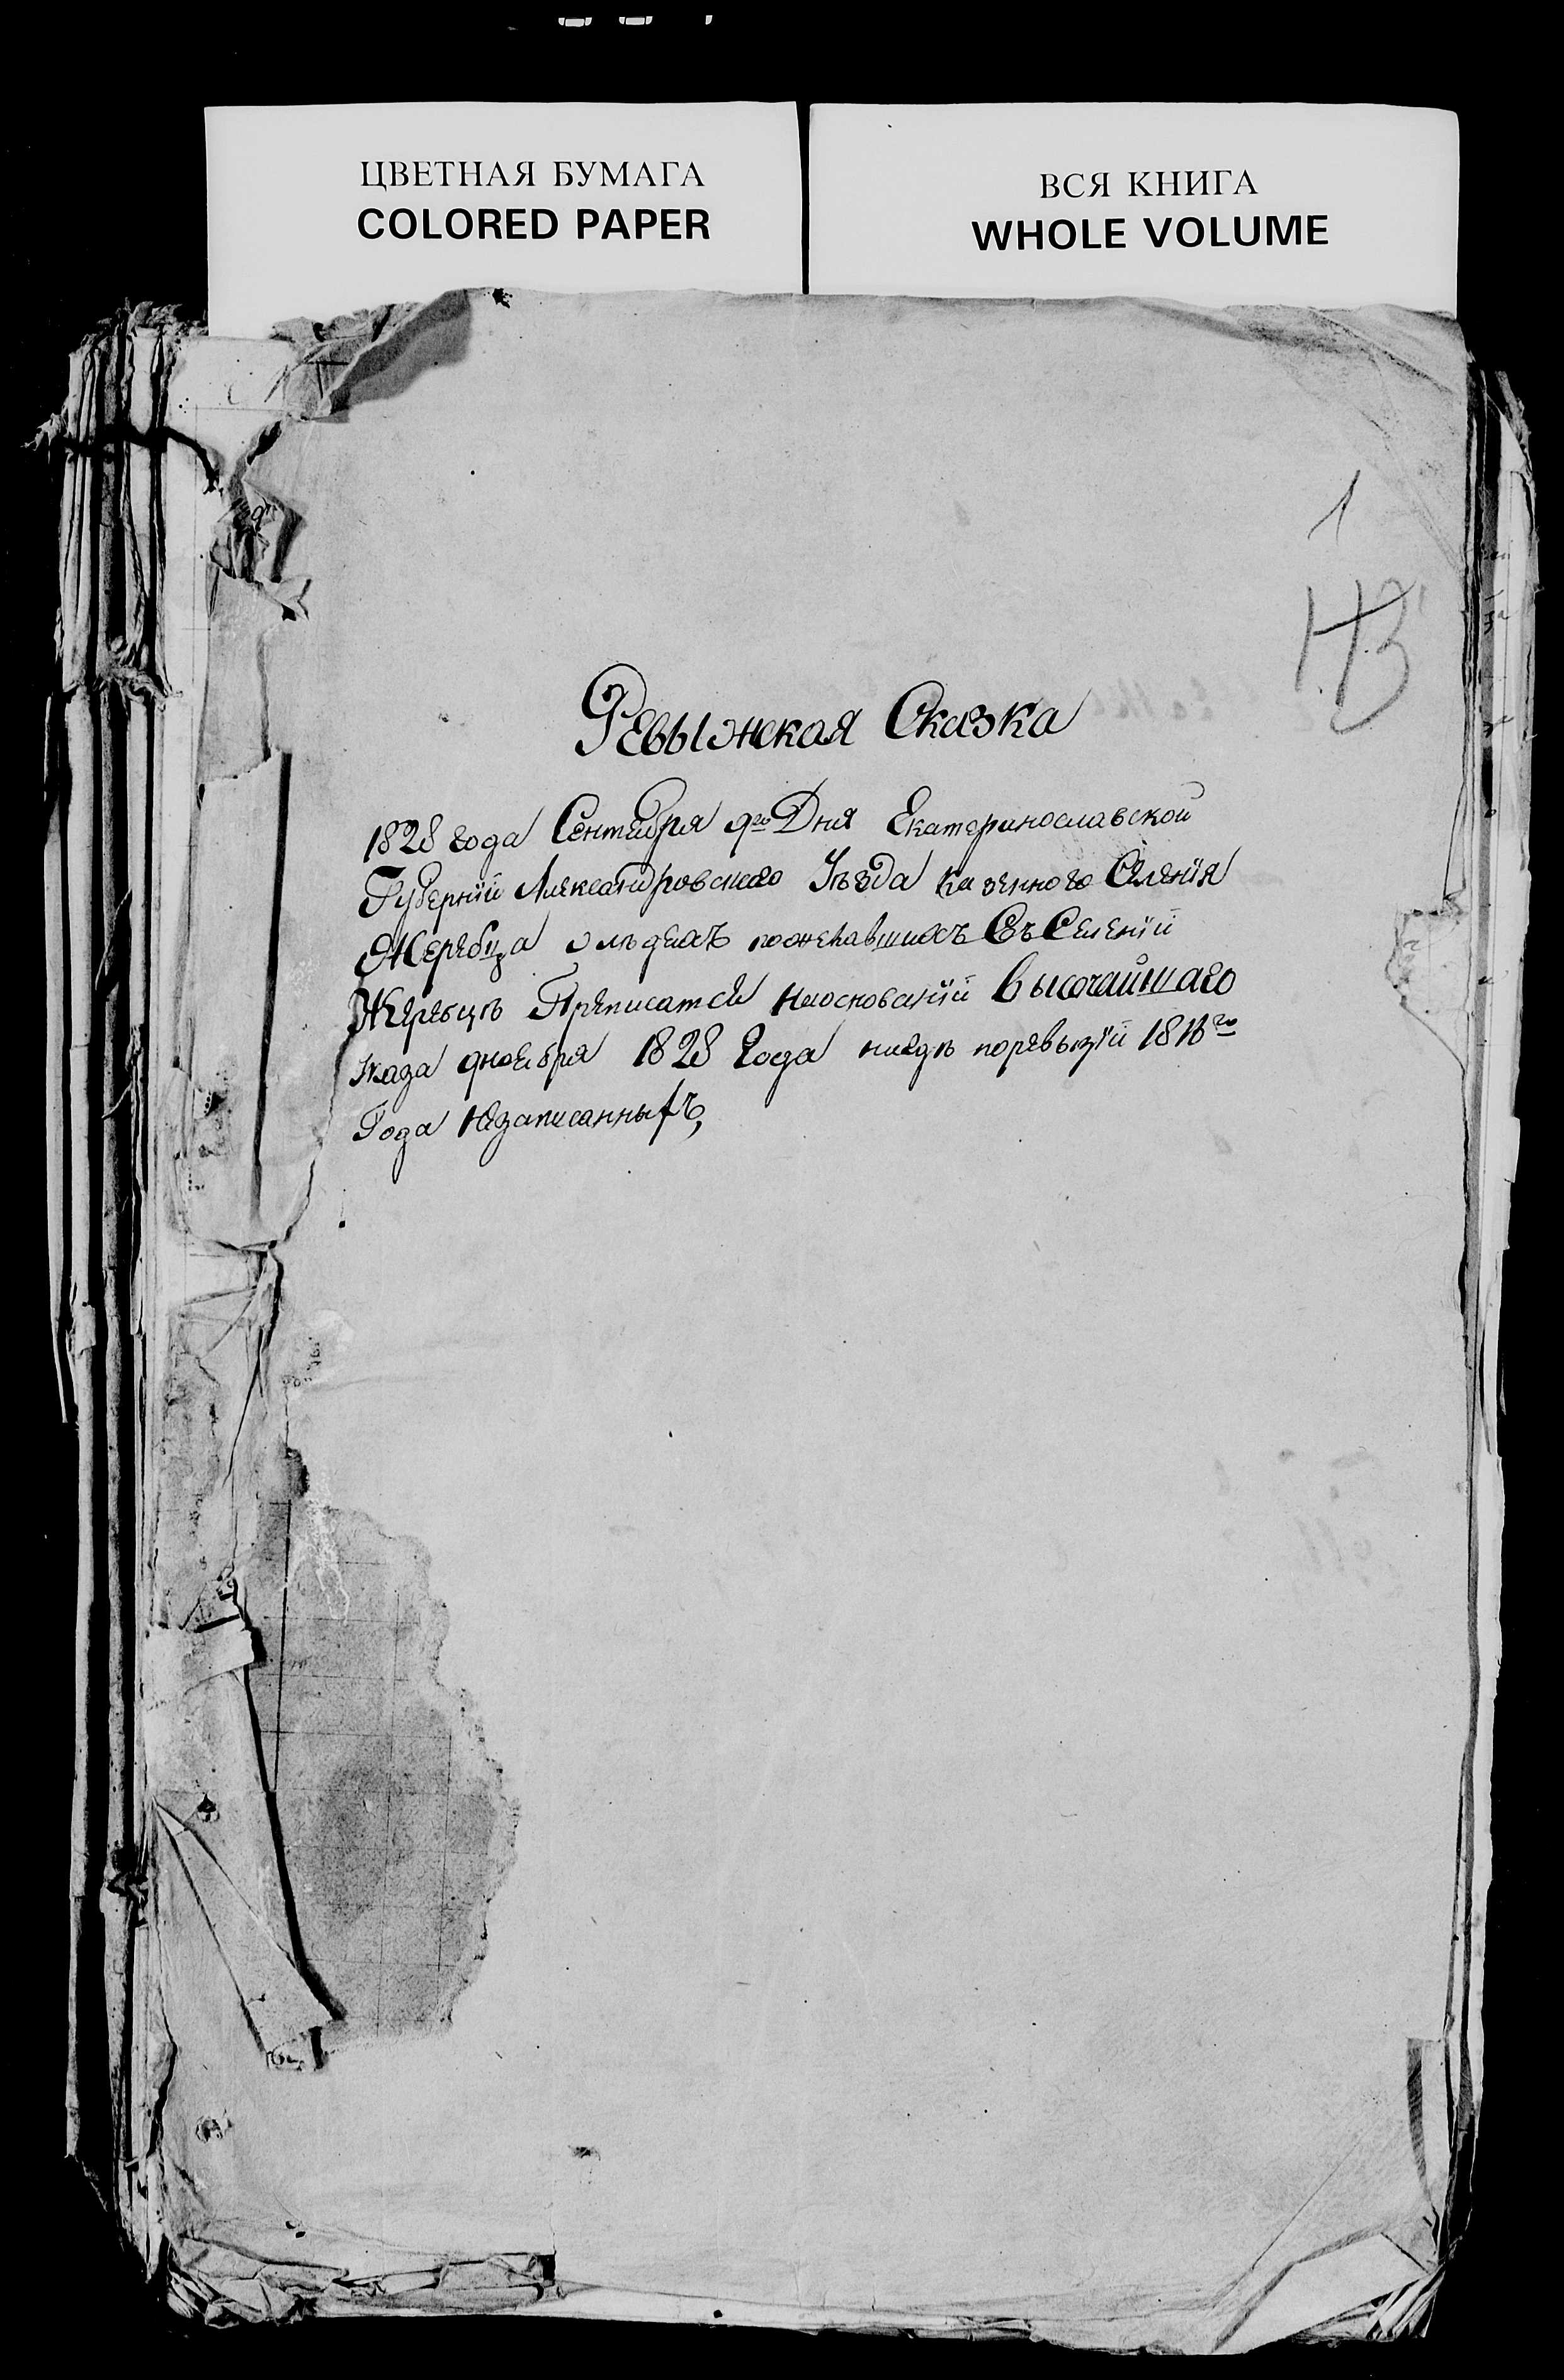 ЦВЕТНАЯ БУМАГА
COLORED PAPER
ВСЯ КНИГА
WHOLE VOLUME
1
Ревыжская Сказка
1828 года Сентября 9го Дня Екатеринославской
Губернïи Александровского Уѣзда казенного Селенïя
Жеребца о людяхъ пожелавшихъ Въ Селенïи
Жеребцѣ Приписатся наоснованïи Высочайшаго
Указа 9 ноября 1828 Года нигдѣ поревызïи
Года Незаписанныхъ,